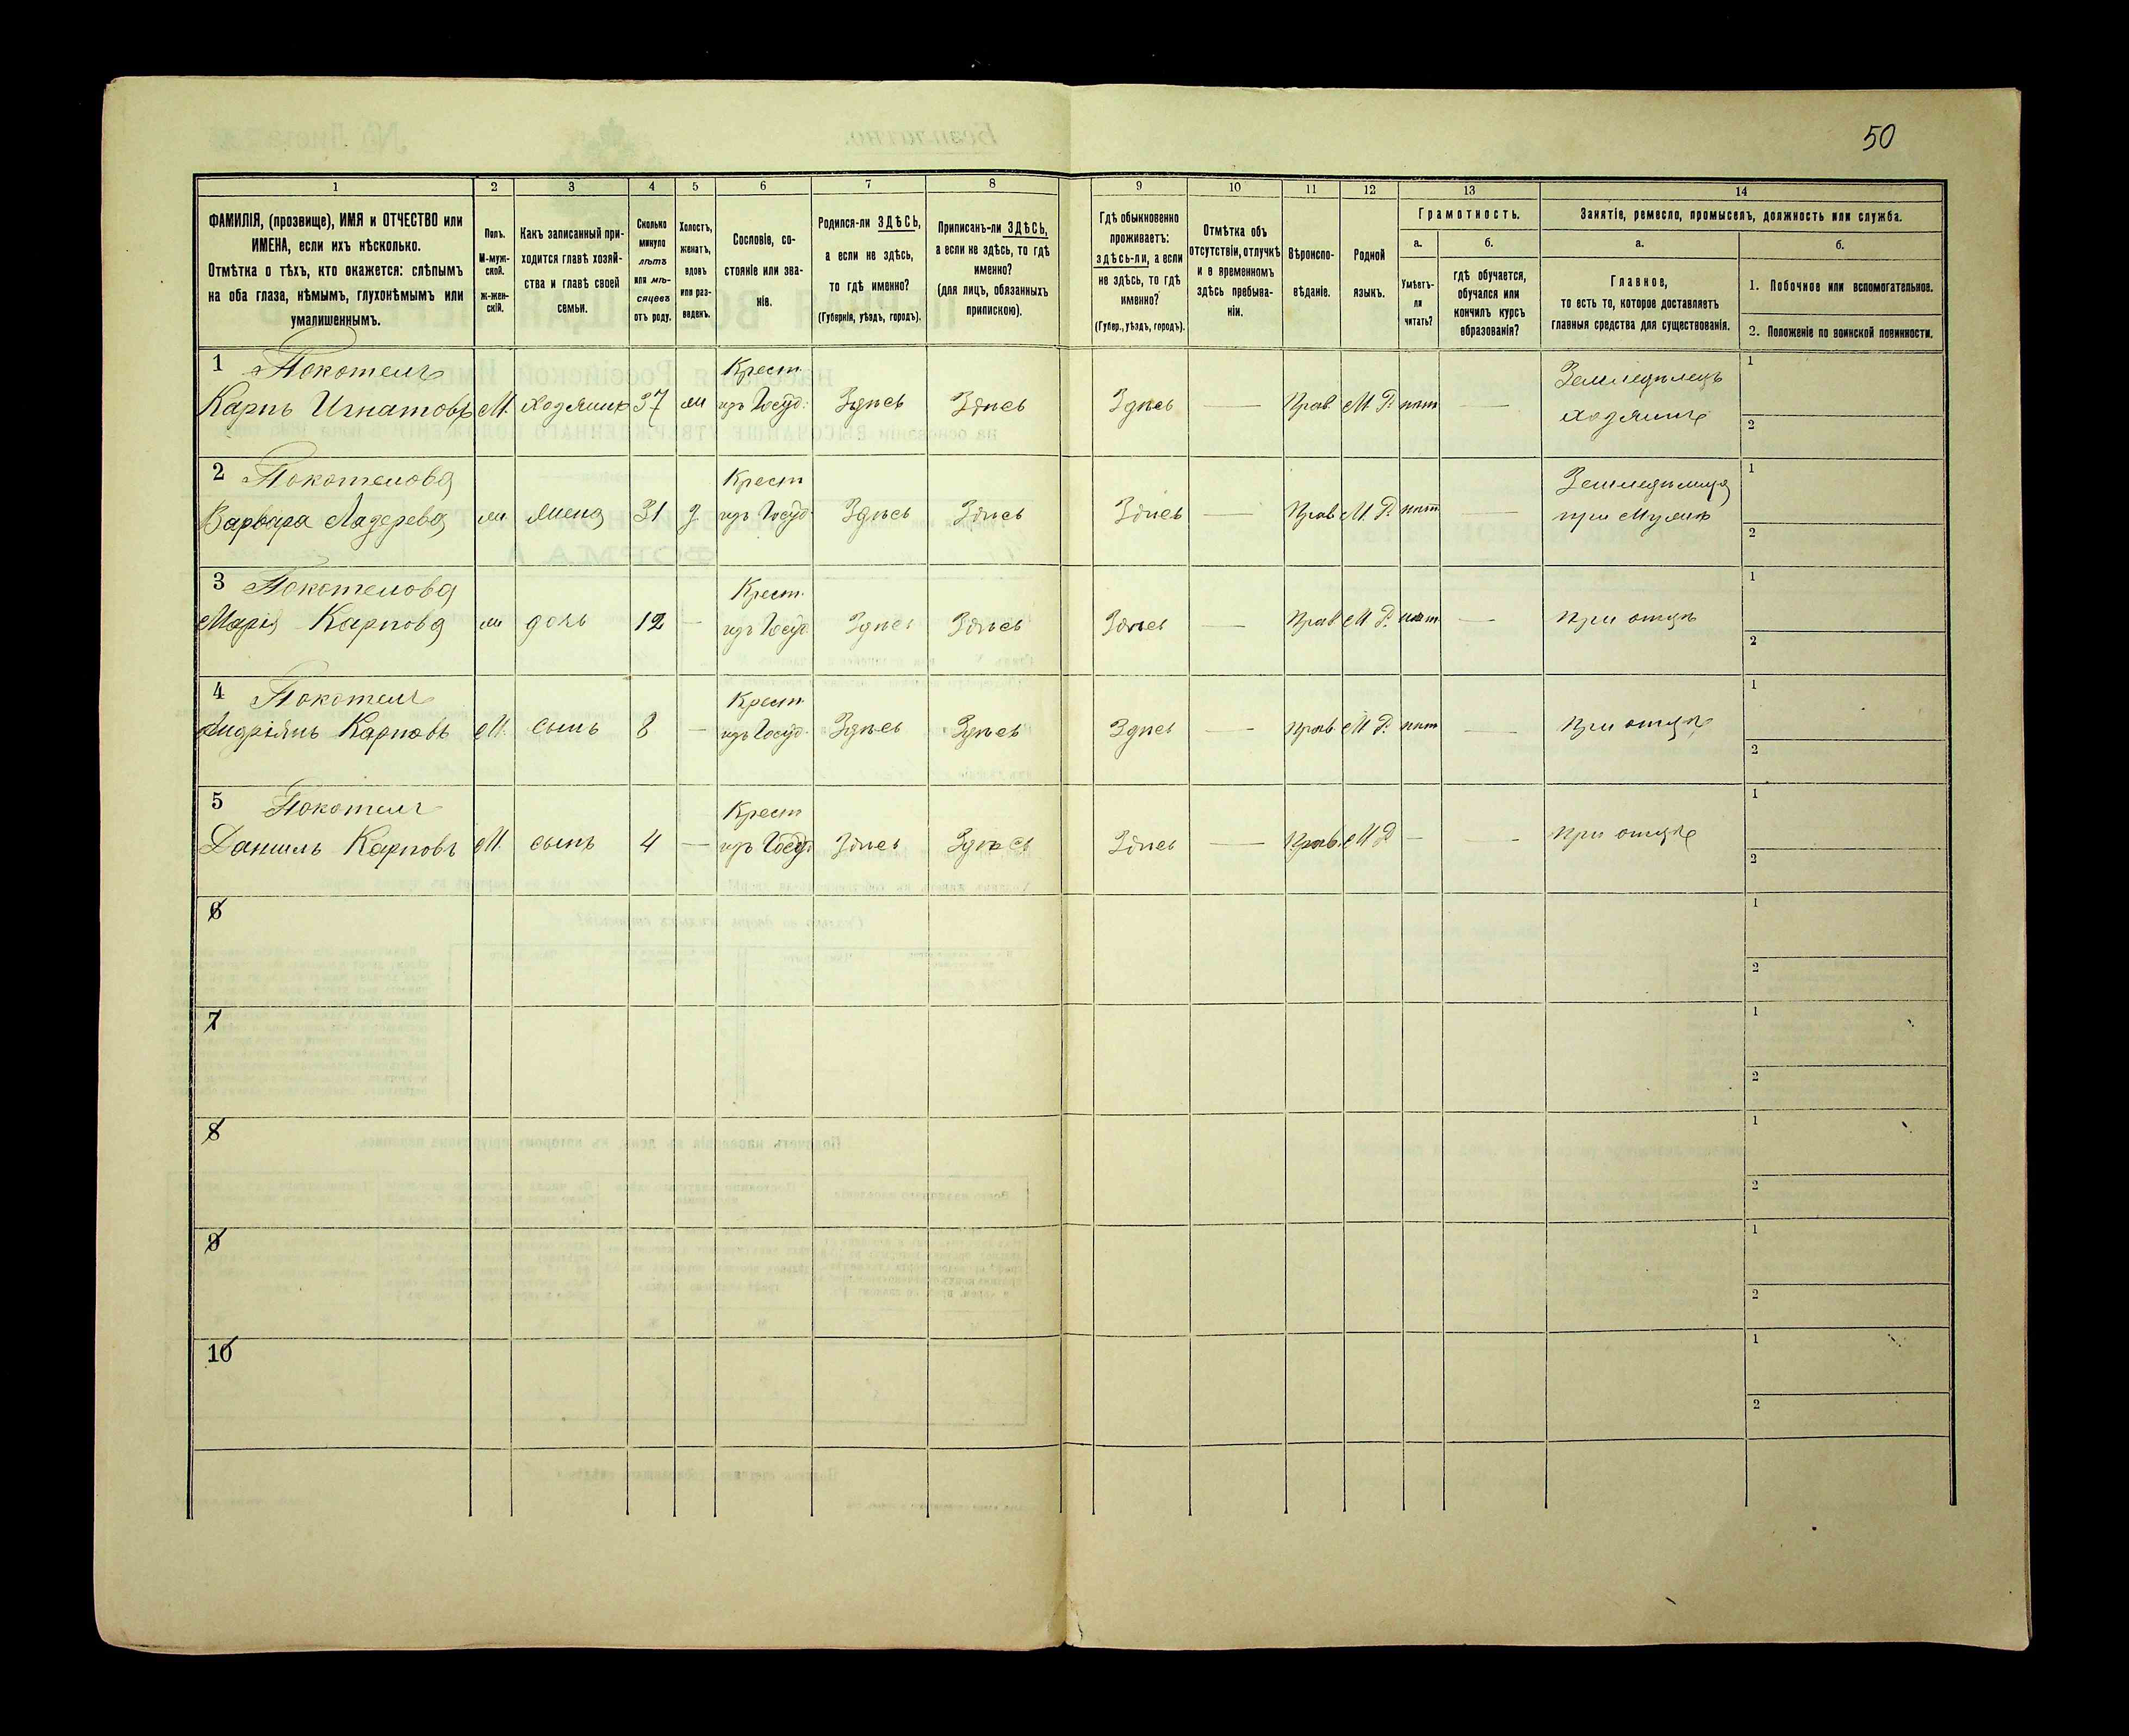 50
1 2 3 4 5 6 7 8 9 10 11 12 13 14
ФАМИЛІЯ, (прозвище), ИМЯ и ОТЧЕСТВО или
ИМЕНА, если ихъ нѣсколько.
Отмѣтка о тѣхъ, кто окажется: слѣпымъ
на оба глаза, нѣмымъ, глухонѣмымъ или
умалишеннымъ.
Полъ.
М-муж-
ской.
ж-жен-
скій.
Какъ записанный при-
ходится главѣ хозяй-
ства и главѣ своей
семьи.
Сколько
минуло
лѣтъ
или мѣ-
сяцевъ
отъ роду.
Холостъ,
женатъ,
вдовъ
или раз-
веденъ.
Сословіе, со-
стояніе или зва-
ніе.
Родился-ли ЗДѢСЬ,
а если не здѣсь,
то гдѣ именно?
(Губернія, уѣздъ, городъ).
Приписанъ-ли ЗДѢСЬ,
а если не здѣсь, то гдѣ
именно?
(для лицъ, обязанныхъ
припискою).
Гдѣ обыкновенно
проживаетъ:
здѣсь-ли, а если
не здѣсь, то гдѣ
именно?
(Губер., уѣздъ, городъ).
Отмѣтка объ
отсутствіи, отлучкѣ
и о временномъ
здѣсь пребыва-
ніи.
Вѣроиспо-
вѣданіе.
Родной
языкъ.
Грамотность.
а.
Умѣетъ-
ли
читать?
б.
гдѣ обучается,
обучался или
кончилъ курсъ
образованія?
Занятіе, ремесло, промыселъ, должность или служба.
а.
Главное,
то есть то, которое доставляетъ
главныя средства для существованія.
б.
1. Побочное или вспомогательное.
2. Положеніе по воинской повинности.
1 Покотель Крест Земледѣлецъ 1
Карпъ Игнатовъ М. хозяинъ 37 ж изъ Госуд. Здѣсь Здѣсь Здѣсь — Прав. М. Р. нѣт — хозяинъ 2
2 Покотелова Крест Земледѣлица 1
Варвара ж жена 31 з изъ Госуд. Здѣсь Здѣсь Здѣсь — Прав М. Р. нѣт — при мужѣ 2
3 Покотелова Крест. 1
Марія Карпова ж дочь 12 — изъ Госуд. Здѣсь Здѣсь Здѣсь — Прав М Р. нѣт — при отцѣ 2
4 Покотель Крест. 1
Андріянъ Карповъ М. сынъ 8 — изъ Госуд. Здѣсь Здѣсь Здѣсь — Прав М Р. нѣт — при отцѣ 2
5 Покотель Крест 1
Даниилъ Карповъ М. сынъ 4 — изъ Госуд. Здѣсь Здѣсь Здѣсь — Прав. М Р — — при отцѣ 2
6 1
2
7 1
2
8 1
2
9 1
2
10 1
2